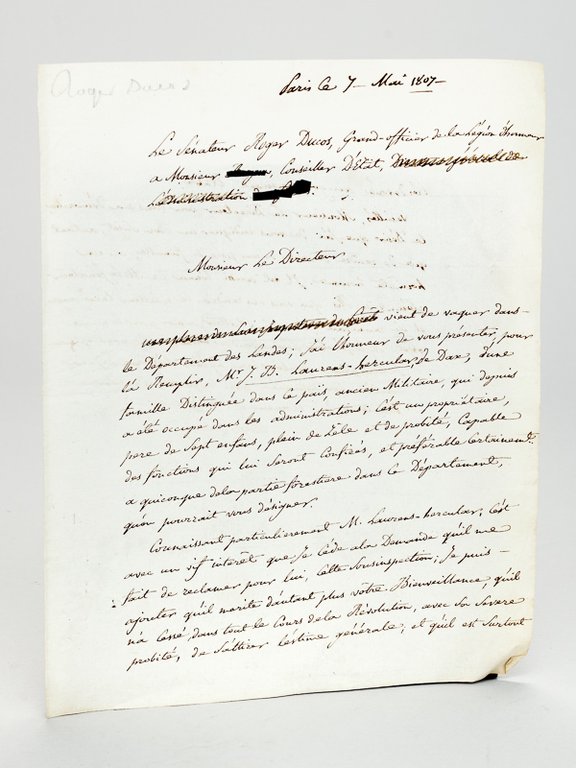 Roger Ducos
Paris Ce 7 - Mai 1807 -
Le Sénateur Roger Ducos, Grand-officier de la Légion d'honneur
a Monsieur Conseiller D'État,
L'administration
Monsieur Le Directeur
vient de vaquer dans
le Département des Landes; J'ai l'honneur de vous présenter, pour
la Remplir, Mr. J. B. Laurens-hercular, de Dax; d'une
famille Distinguée dans le païs, ancien Militaire, qui depuis
a été occupé dans les administrations; c'est un propriétaire,
pere de Sept enfans, plein de Zèle et de probité, Capable
des fonctions qui lui Seront Confiées, et préférable Certainement
a quiconque de la partie forestiere dans ce Département,
qu'on pourrait vous désigner.
Connaissant particulierement M. Laurens-hercular, C'est
avec un vif interêt que Je Cède a la Demande qu'il me
fait de reclamer pour lui, Cette Sousinspection; Je puis -
ajouter qu'il mérite d'autant plus votre Bienveillance, qu'il
n'a Cessé, dans tout le Cours de la Révolution, avec Sa Severe
probité, de S'attirer L'estime générale; et qu'il est Surtout